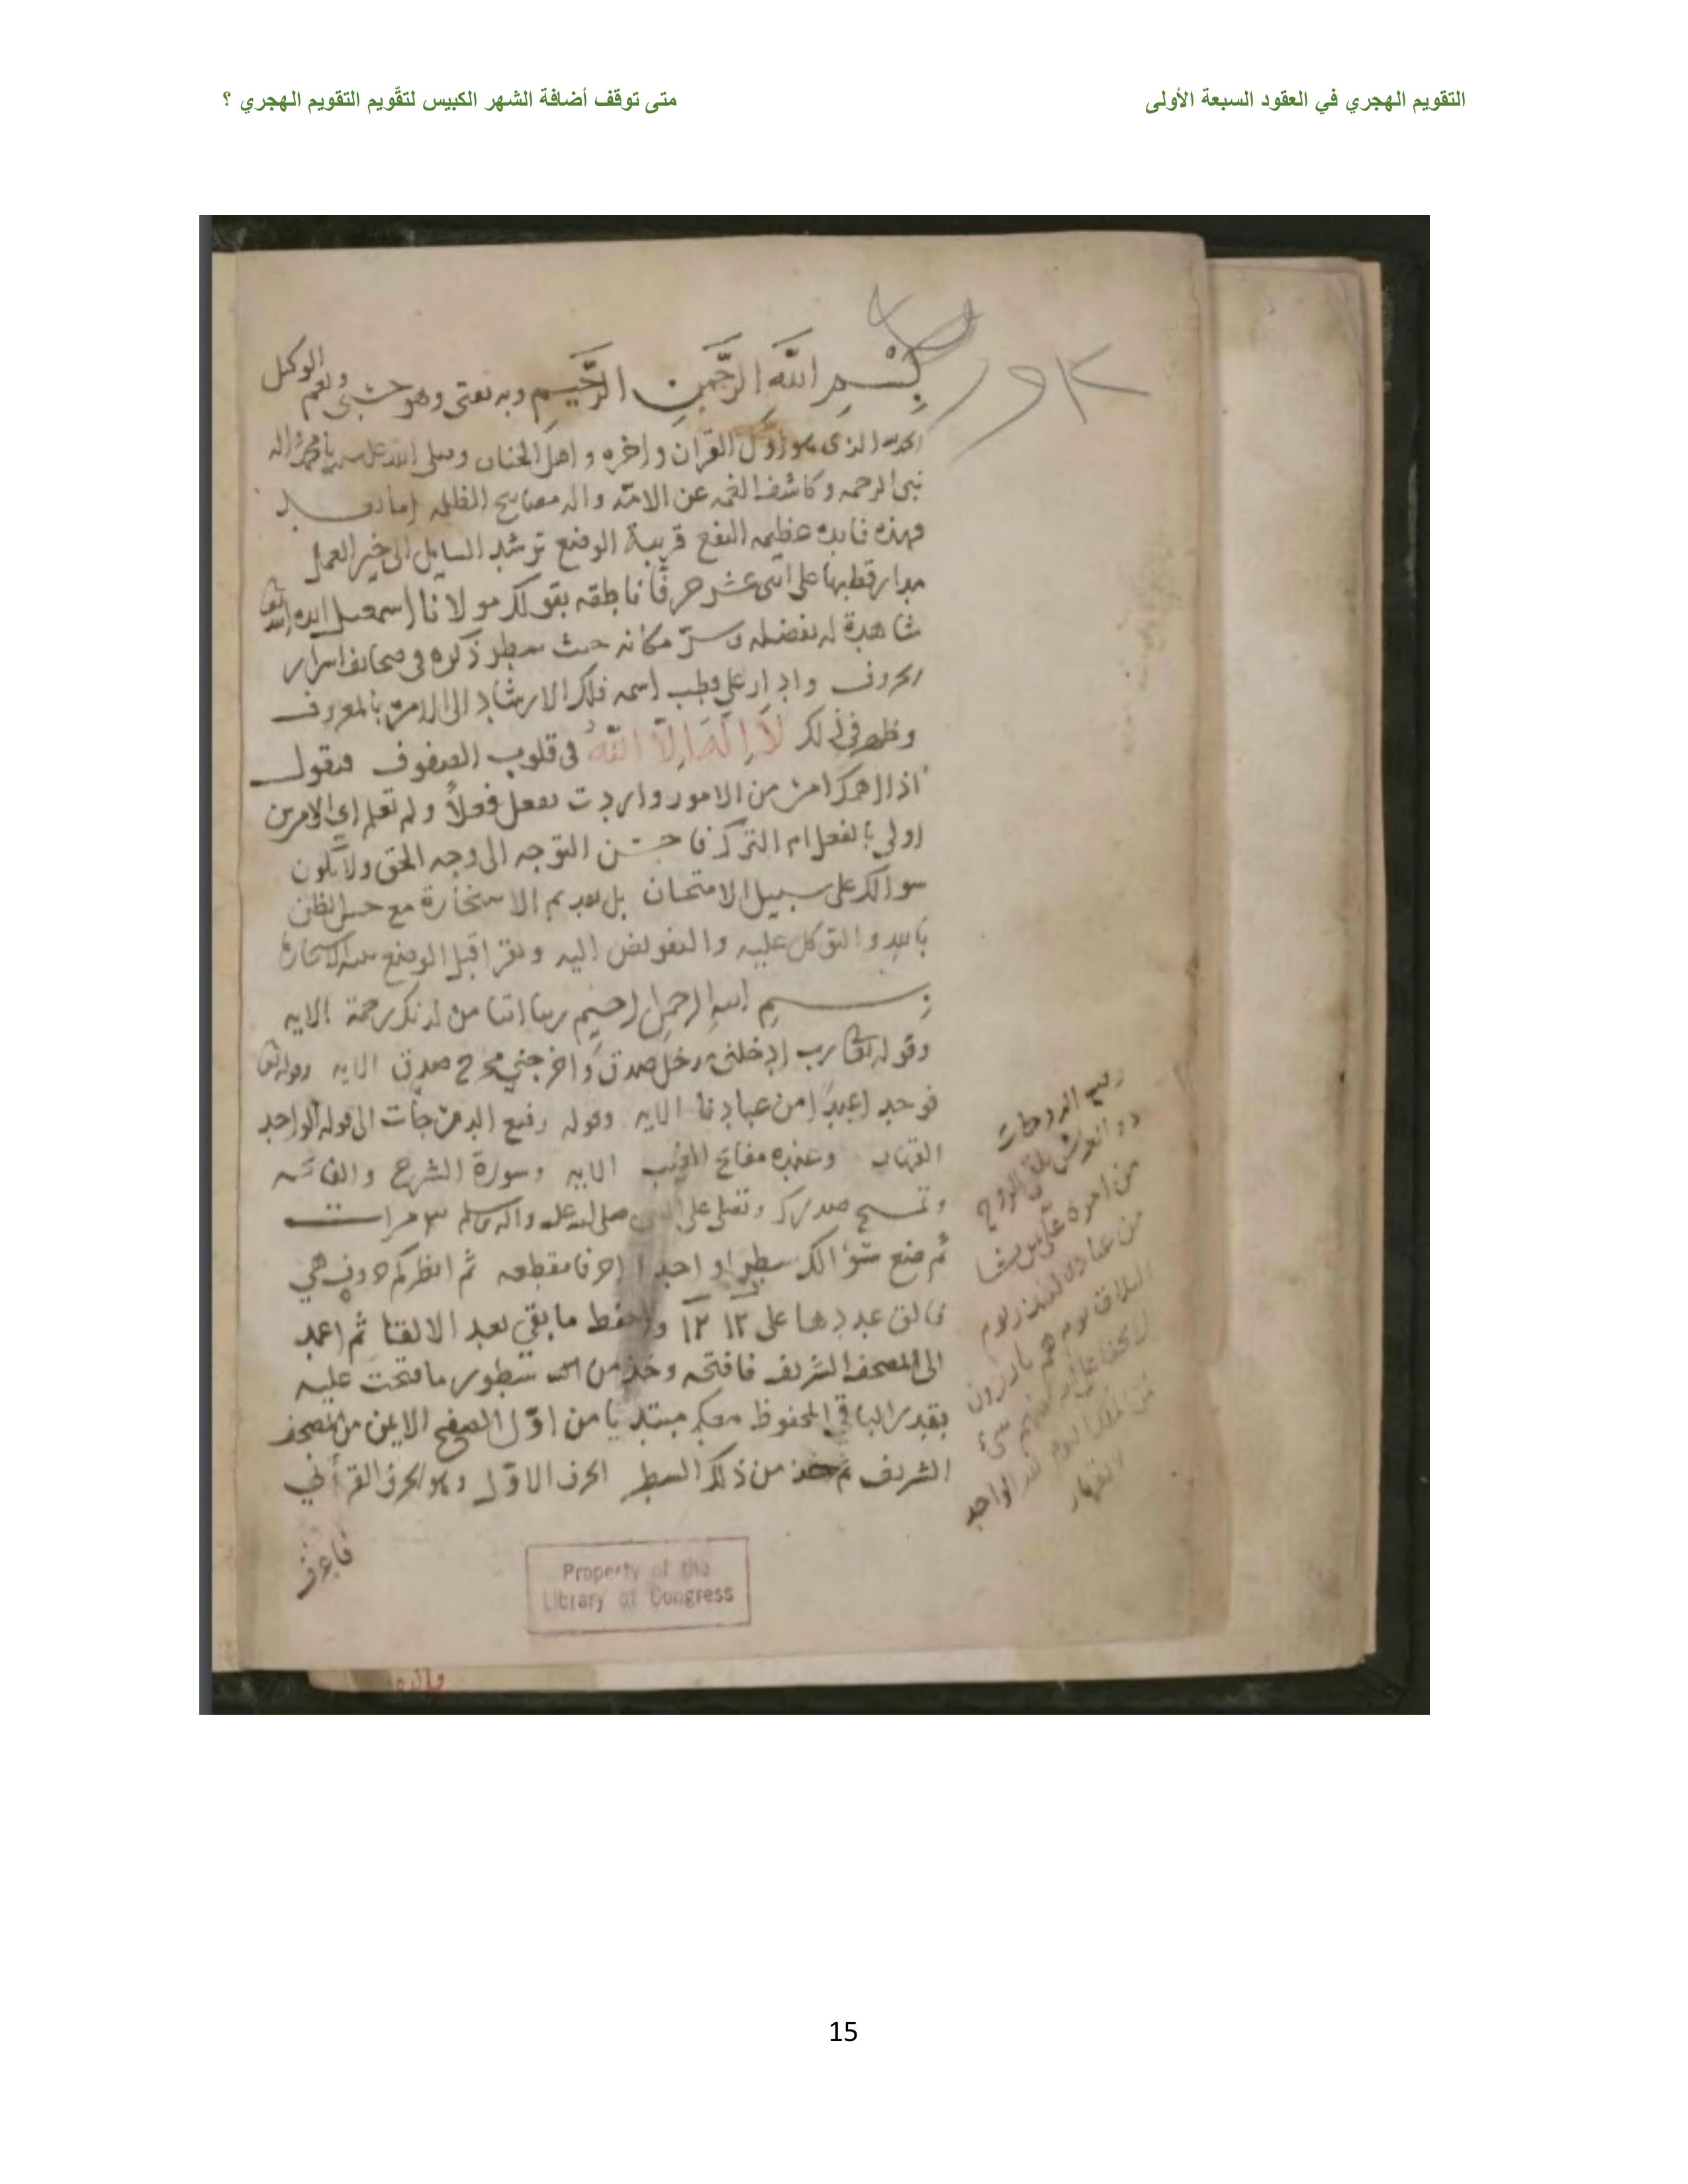 التقويم الهجري في العقود السبعة الأولى
متى توقف أضافة الشهر الكبيس لتقّويم التقويم الهجري ؟
بِسْمِ اللَّهِ الرَّحْمَنِ الرَّحِيمِ وبه ثقتى وهو حسبى ونعم الوكيل
الحمد لله الذى هو اول القران واخره و اهل الجنان وصلى الله على
نبى الرحمه وكاشف الغمه عن الامة واله مصابيح الظلمه اما بعد
فهذه فايده عظيمه النفع قريبة الوضع ترشد السايل الى خير العمل
مدار قطبها على اثنى عشر حرفًا ناطقه بقولك مولانا اسمعيل ايده الله
شاهدة له بفضله و مكانه حيث سطر ذكره فى صحايف اسرار
الحروف وادار على قطب اسمه فلك الارشاد الى الامر بالمعروف
وظهر فى ذلك لَا إِلَهَ إِلَّا اللَّهُ فى قلوب الصفوف فنقول
اذا اهمك امر من الامور واردت تفعل فعلاً ولم تعلم اى الامرين
اولى بالفعل ام الترك فاحسن التوجه الى وجه الحق ولا يكون
سوالك على سبيل الامتحان بل الاستخارة مع حسن الظن
بالله والتوكل عليه والتفويض اليه وتقرا قبل الوضع
بسم الله الرحمن الرحيم ربنا اتنا من لدنك رحمة الايه
وقوله تعالى رب ادخلنى مدخل صدق واخرجني مخرج صدق الايه وقوله تعالى
فوجدا عبدًا من عبادنا الايه وقوله رفيع الدرجات الى قوله الواحد
القهار وعنده مفاتح الغيب الايه وسورة الشرح والفاتحه
وتمسح صدرك وتصلى على النبى صلى الله عليه واله وسلم ٣ مرات
ثم ضع سؤالك سطرا واحدا احرفا مقطعه ثم انظر كم حروف هي
فالق عددها على ١٢ ١٢ واحفظ ما بقي بعد الالقا ثم اعمد
الى المصحف الشريف فافتحه وخذ من سطور ما فتحت عليه
بقدر الباقي المحفوظ معك مبتديا من اوّل الصفح الايمن من المصحف
الشريف ثم خذ من ذلك السطر الحرف الاول وهو الحرف القرأني
فاعرف
رفيع الدرجات
ذو العرش يلقى الروح
من امره على من يشا
من عباده لينذر يوم
التلاق يوم هم بارزون
لا يخفى على الله منهم شئ
لمن الملك اليوم لله الواحد
القهار
Property of the
Library of Congress
15